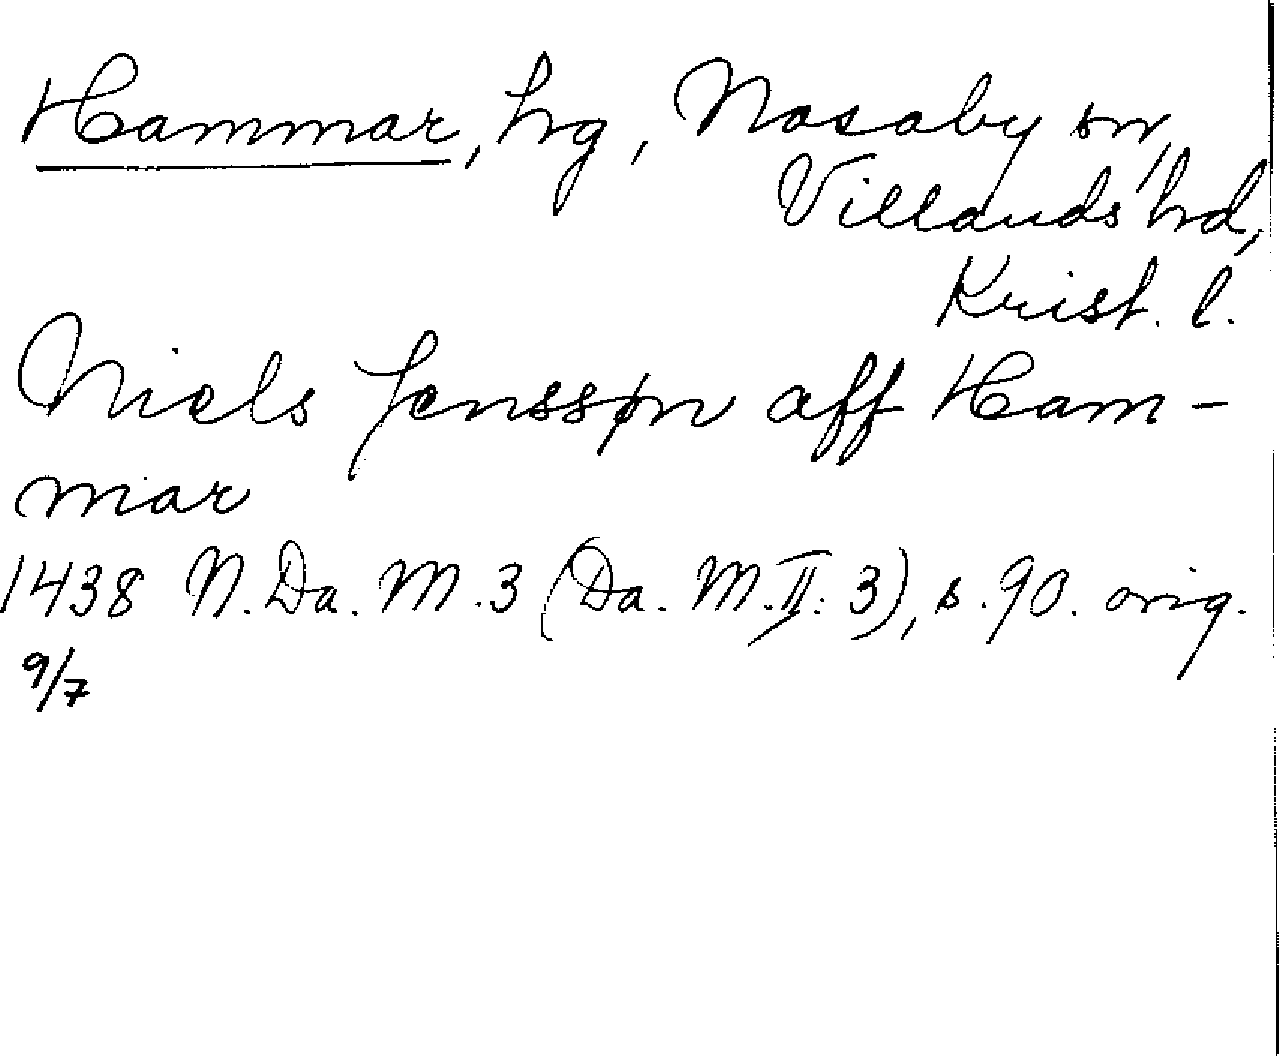 Hammar, hg, Nosaby sn,
Villands hd,
Krist. l.
Niels Jenssøn aff Ham-
mar
1438 N. Da. M. 3 (Da. M. II: 3), s. 90. orig.
9/7